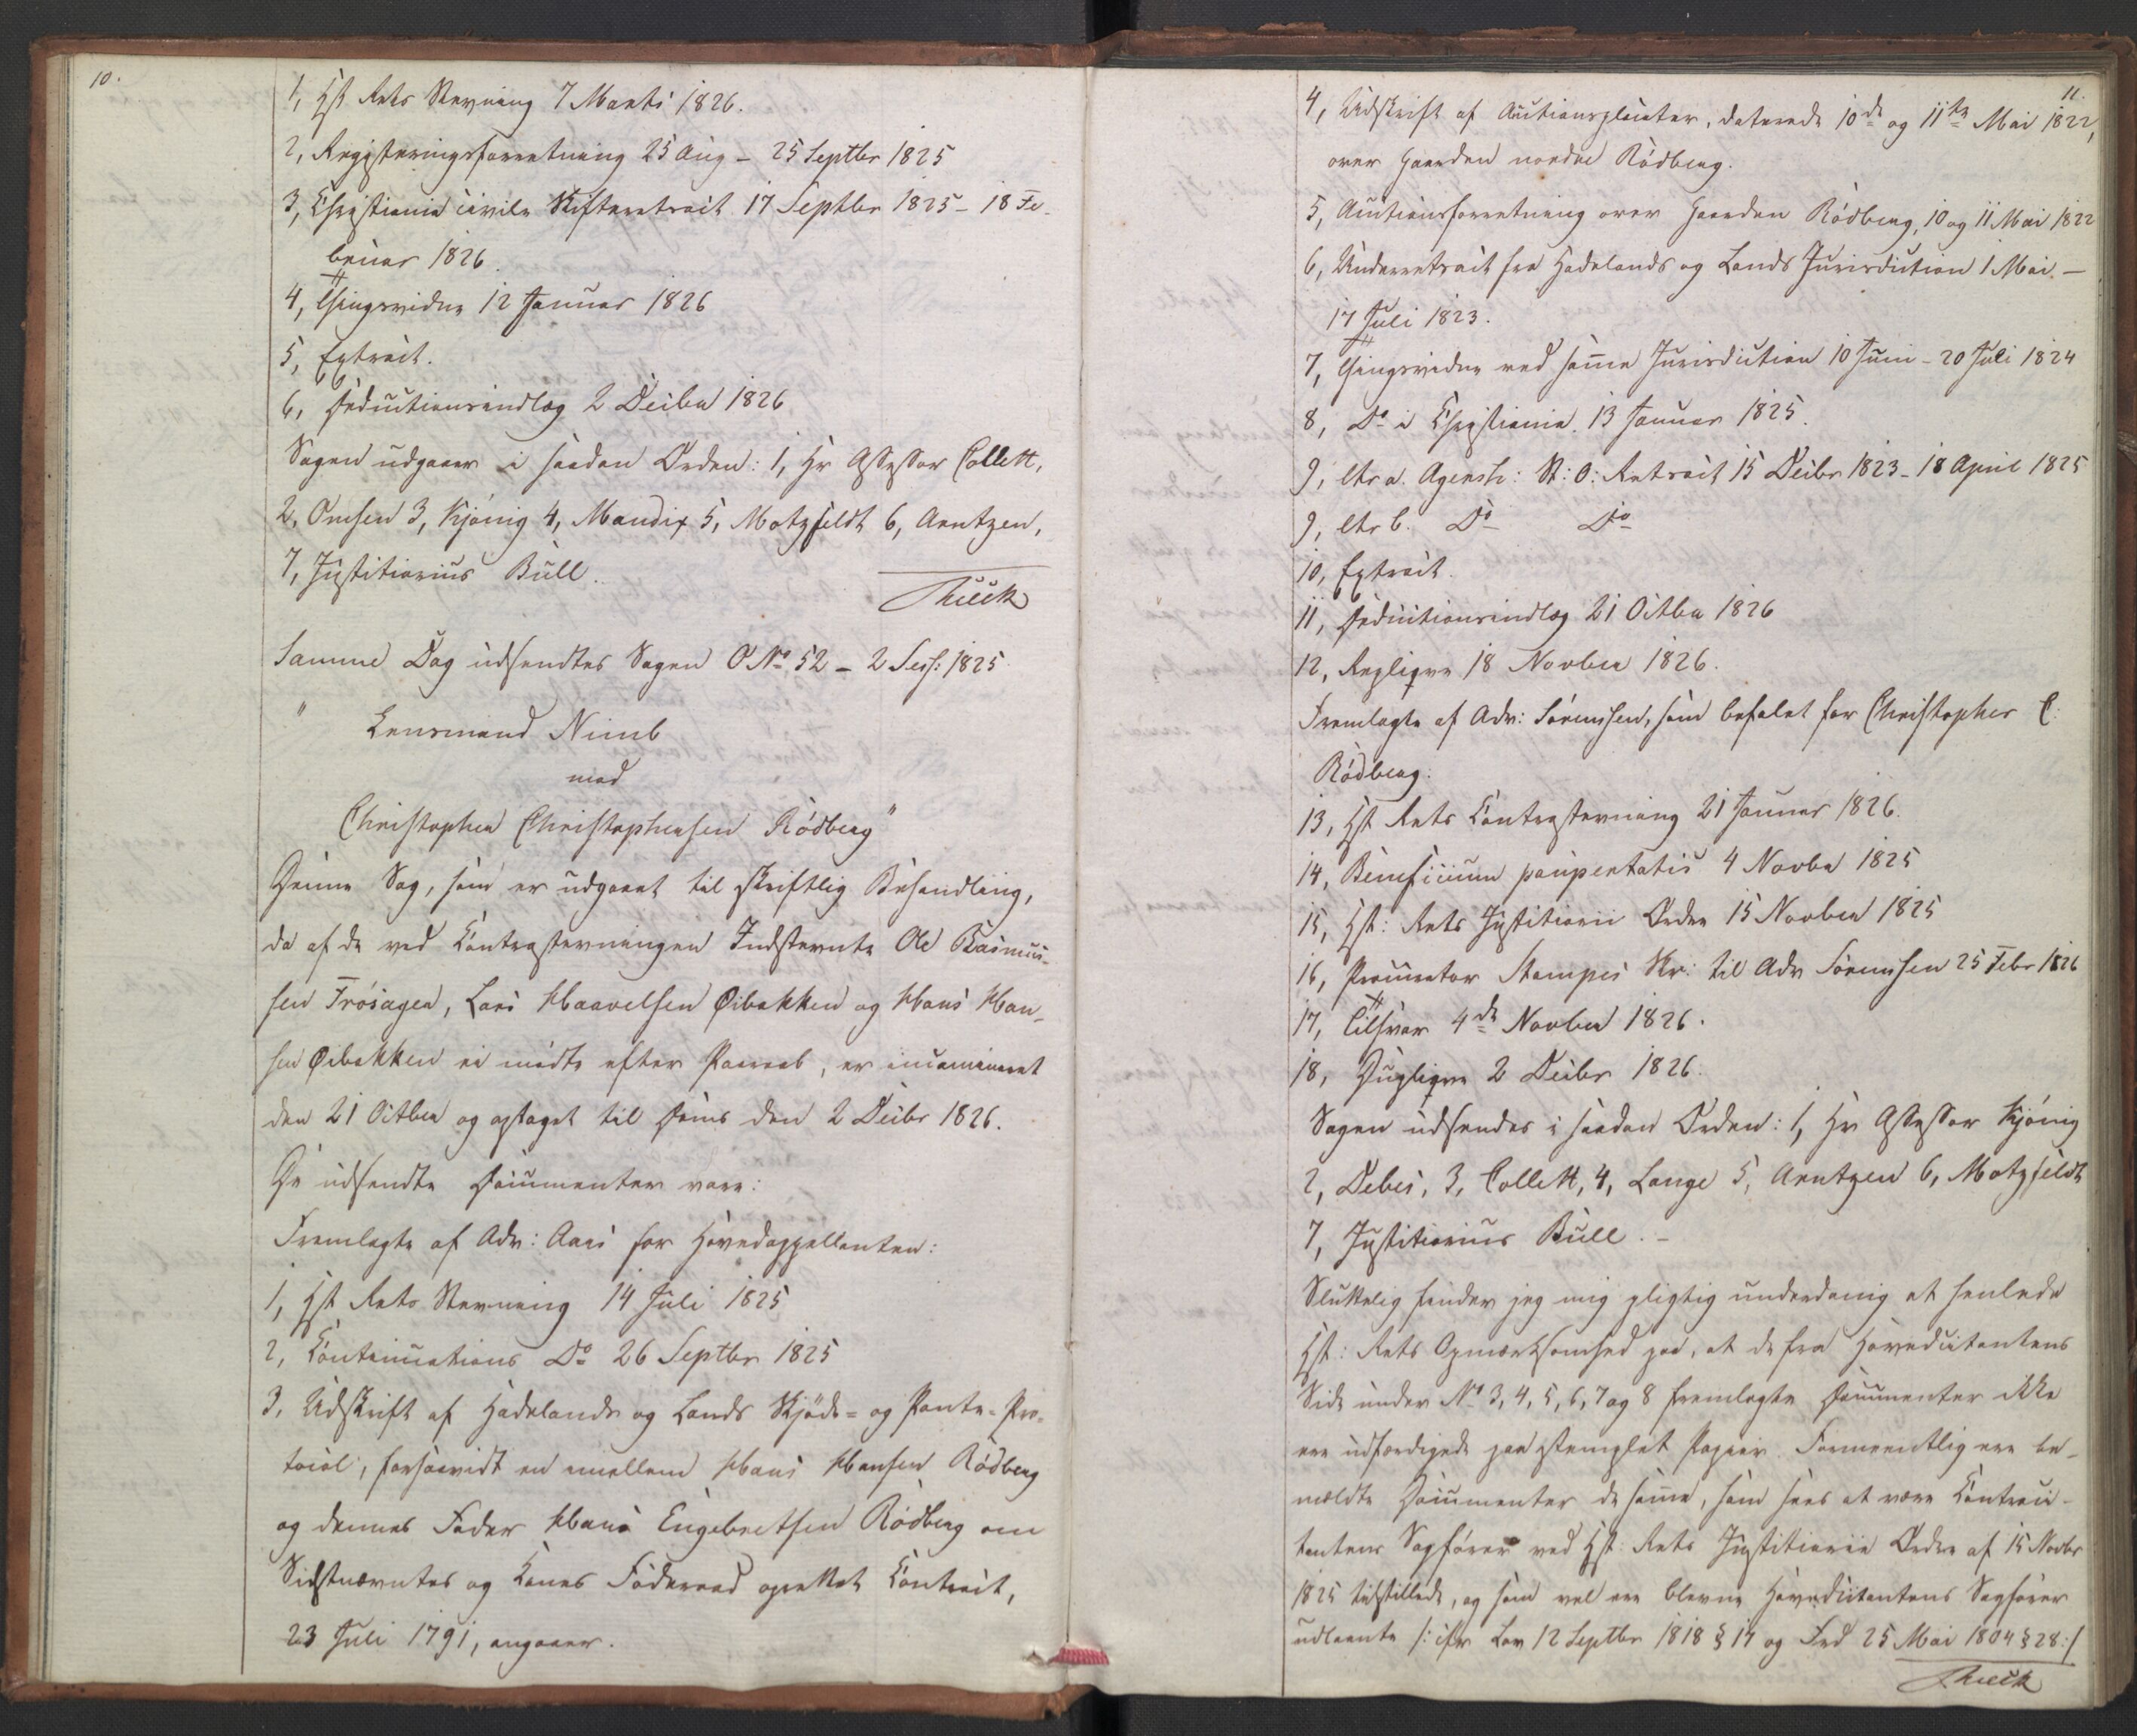 10.
1, Hst Rets Stevning 7 Marts 1826.
2, Registeringsforretning 25 Aug – 25 Septbr 1825
3, Christiania civile Skifteretsact 17 Septbr 1825 – 18 Fe-
bruar 1826.
4, Thingsvidne 12 Januar 1826
5, Extract.
6, Deductionsindlæg 2 Decbr 1826
Sagen udgaaer i saadan Orden: 1, Hr Assessor Collett,
2, Omsen 3, Kjönig 4, Mandix 5, Motzfeldt 6, Arntzen,
7, Justitiarius Bull.
Samme Dag udsendtes Sagen O No 52 – 2 Sess: 1825
" Lensmand Nimb
mod
Christopher Christophersen Rödberg"
Denne Sag, som er udgaaet til skriftlig Behandling,
da af de ved Contrastevningen Indstevnte Ole Rasmus-
sen Frösagen, Lars Haavelsen Øibakken og Hans Han-
sen Øibakken ei mödte efter Paaraab, er incamineret
den 21 Octbr og optaget til Doms den 2 Decbr 1826.
De udsendte Documenter vare:
Fremlagte af Adv: Aars for Hovedappellanten:
1, Hst Rets Stevning 14 Juli 1825
2, Continuations Do 26 Septbr 1825
3, Udskrift af Hadelands og Lands Skjöde- og Pante-Pro-
tocol, forsaavidt en imellem Hans Hansen Rödberg
og dennes Fader Hans Engebretsen Rödberg om
Sidstnævntes og Kones Föderaad oprettet Contract,
23 Juli 1791, angaaer.
11.
4, Udskrift af Auctionsplacater, daterede 10de og 11te Mai 1822,
over Gaarden nordre Rödberg.
5, Auctionsforretning over Gaarden Rödberg, 10 og 11 Mai 1822
6, Underretsact fra Hadelands og Lands Jurisdiction 1 Mai –
17 Juli 1823.
7, Thingsvidne ved samme Jurisdiction 10 Juni – 20 Juli 1824
8, Do i Christiania 13 Januar 1825.
9, ltr a. Agersh: St: O: Retsact 15 Decbr 1823 – 18 April 1825
9, ltr b. Do Do
10, Extract.
11, Deductionsindlæg 21 Octbr 1826
12, Repliqve 18 Novber 1826.
Fremlagte af Adv: Sörenssen, som befalet for Christopher C:
Rödberg:
13, Hst Rets Contrastevning 21 Januar 1826.
14, Beneficium paupertatis 4 Novbr 1825
15, Hst: Rets Justitiarii Ordre 15 Novber 1825
16, Procurator Stamps Skr: til Adv Sörenssen 25 Febr 1826
17, Tilsvar 4de Novber 1826.
18, Dupliqve 2 Decbr 1826.
Sagen udsendes i saadan Orden: 1, Hr Assessor Kjönig
2, Debes, 3, Collett, 4, Lange 5, Arntzen 6, Motzfeldt
7, Justitiarius Bull. –
Sluttelig finder jeg mig pligtig underdanig at henlede
Hst: Rets Opmærksomhed paa, at de fra Hovedcitantens
Side under No 3, 4, 5, 6, 7 og 8 fremlagte Documenter ikke
ere udfærdigede paa stemplet Papiir. Formeentlig ere be-
mældte Documenter de samme, som sees at være Contraci-
tantens Sagförer ved Hst: Rets Justitiarii Ordre af 15 Novbr
1825 tilstillede, og som vel ere blevne Hovedcitantens Sagförer
udlaante /: cfr Lov 12 Septbr 1818 § 17 og Frd 25 Mai 1804 § 28 :/